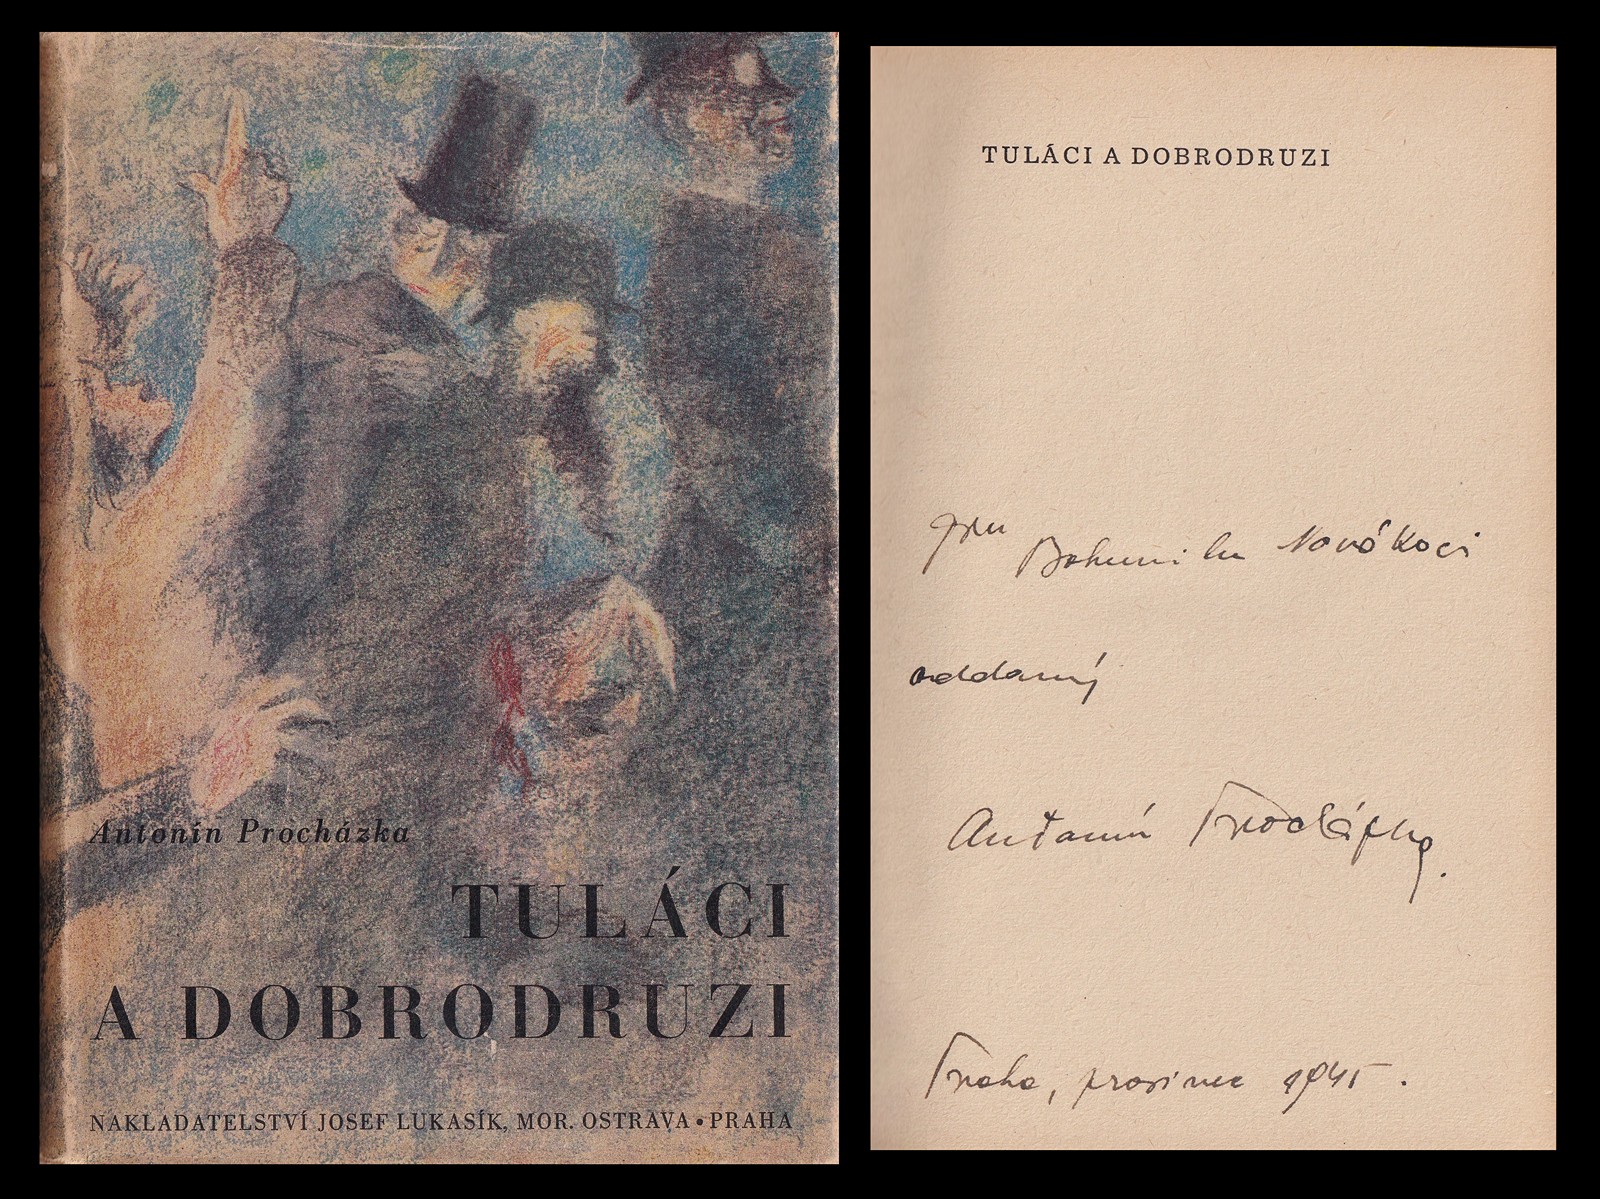 Antonín Procházka
TULÁCI
A DOBRODRUZI
NAKLADATELSTVÍ JOSEF LUKASÍK, MOR. OSTRAVA • PRAHA
TULÁCI A DOBRODRUZI
Bohumilu Novákovi
oddaný
Antonín Procházka.
Praha, prosinec 1945.